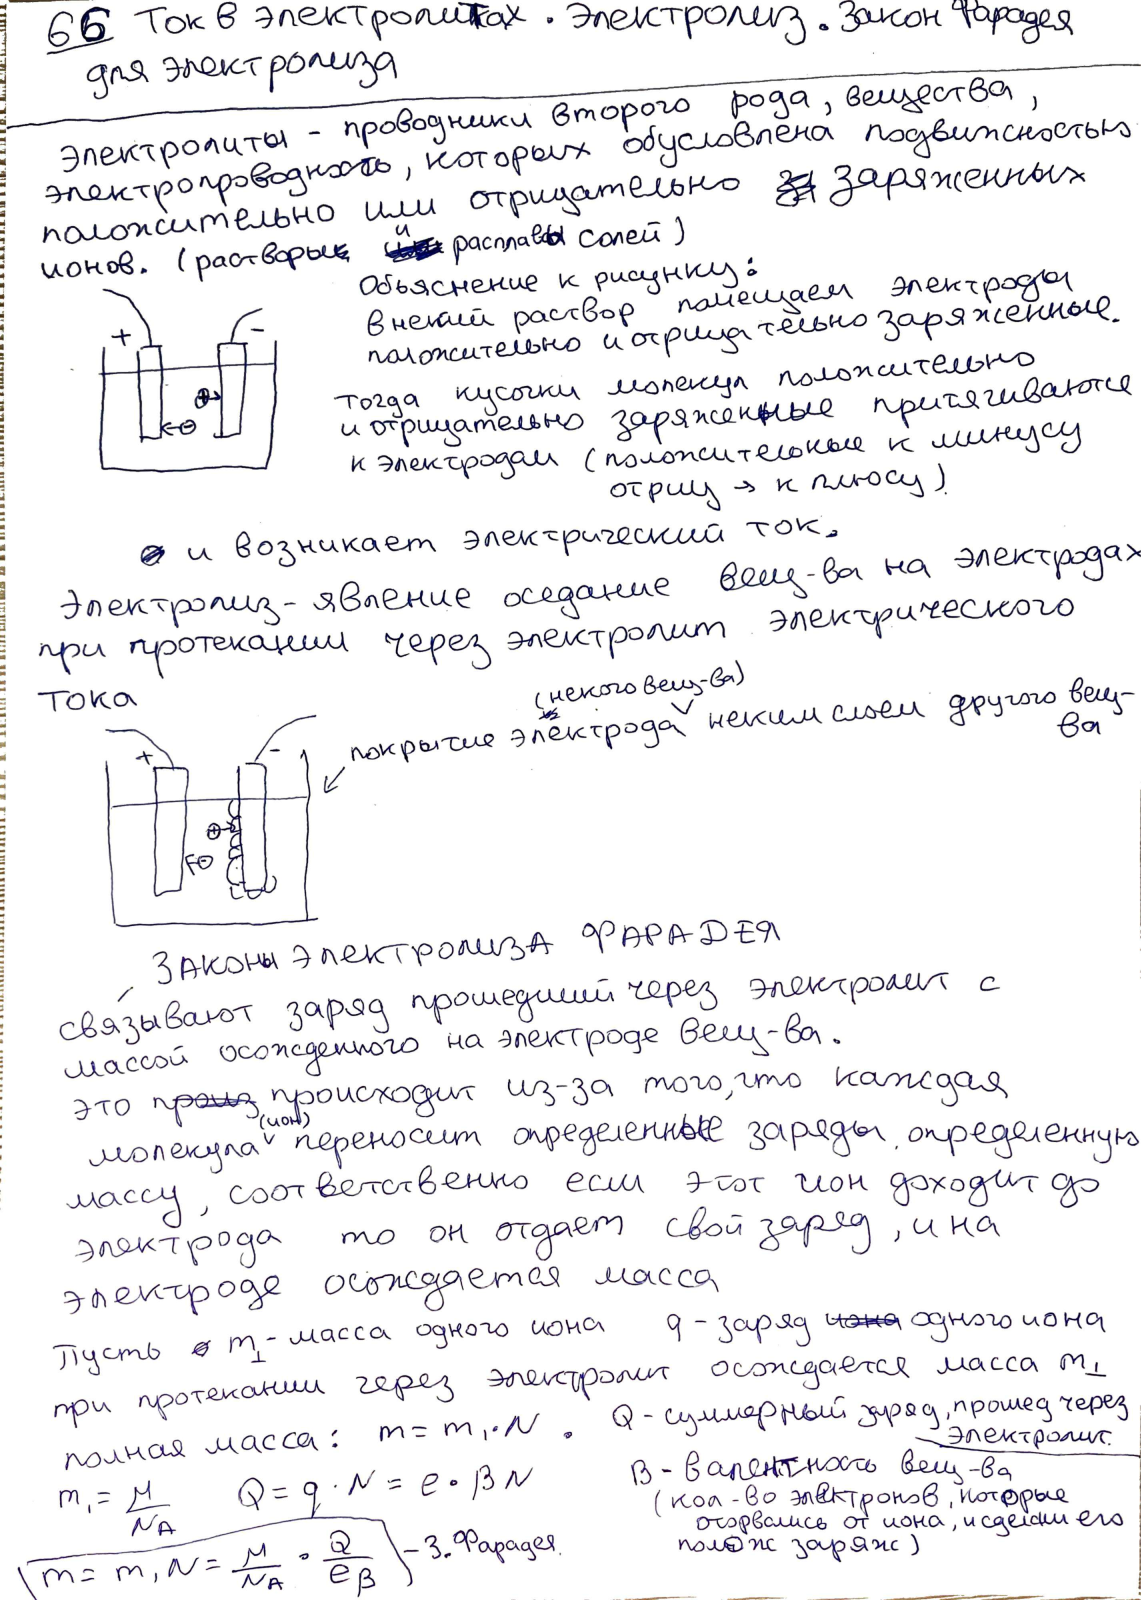 66 Ток в электролитах. Электролиз. Закон Фарадея
для электролиза
Электролиты - проводники второго рода, вещества,
электропроводность, которых обусловлена подвижностью
положительно или отрицательно заряженных
ионов. (растворы и расплавы солей)
Объяснение к рисунку:
в некий раствор помещаем электроды
положительно и отрицательно заряженные.
+ -
⊕→
←⊖
Тогда кусочки молекул положительно
и отрицательно заряженные притягиваются
к электродам (положительные к минусу
отриц → к плюсу)
и возникает электрический ток.
Электролиз - явление оседание вещ-ва на электродах
при протекании через электролит электрического
тока
(некого вещ-ва)
покрытие электрода неким слоем другого вещ-
ва
+ -
⊕→
←⊖
ЗАКОНЫ ЭЛЕКТРОЛИЗА ФАРАДЕЯ
связывают заряд прошедший через электролит с
массой осожденного на электроде вещ-ва.
это происходит из-за того, что каждая
(ион)
молекула переносит определенные заряды, определенную
массу, соответственно если этот ион доходит до
электрода то он отдает свой заряд, и на
электроде осождается масса
Пусть m₁ - масса одного иона q - заряд одного иона
при протекании через электролит осождается масса m₁
полная масса: m = m₁·N. Q - суммарный заряд, прошед через
электролит.
m₁ = M/N_A Q = q·N = e·βN β - валентность вещ-ва
(кол-во электронов, которые
оторвались от иона, и сделали его
полож заряж)
m = m₁N = M/N_A · Q/eβ - З. Фарадея.